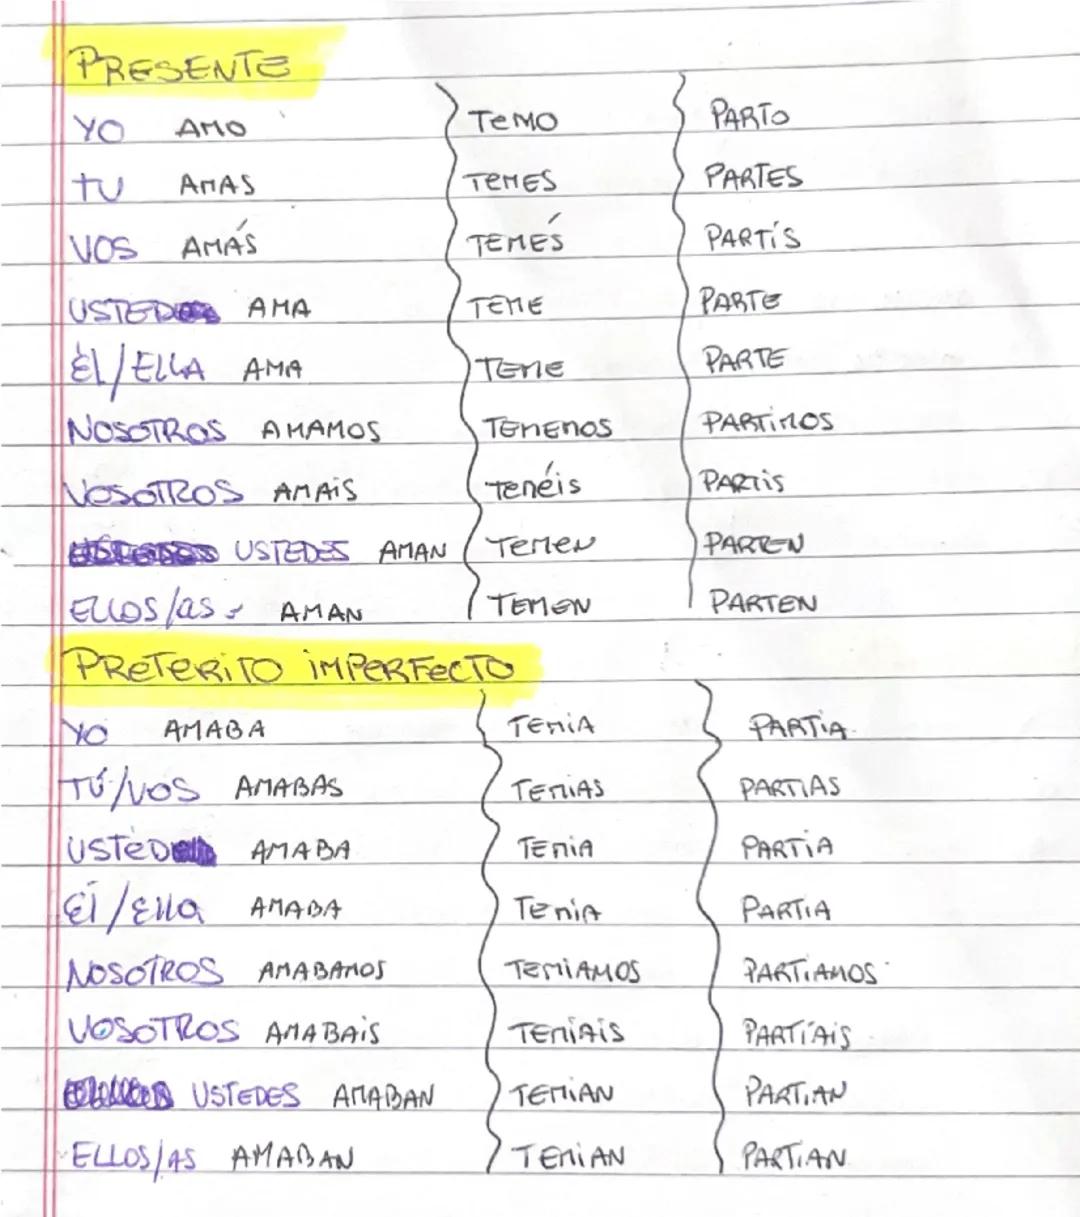 PRESENTE
YO AMO TEMO PARTO
TU AMAS TEMES PARTES
VOS AMÁS TEMÉS PARTÍS
USTED AMA TEME PARTE
ÉL/ELLA AMA TEME PARTE
NOSOTROS AMAMOS TEMEMOS PARTIMOS
VOSOTROS AMAIS TEMÉIS PARTIS
USTEDES AMAN TEMEN PARTEN
ELLOS/AS AMAN TEMEN PARTEN
PRETERITO IMPERFECTO
YO AMABA TEMIA PARTIA
TÚ/VOS AMABAS TEMIAS PARTIAS
USTED AMABA TEMIA PARTIA
Él/Ella AMABA TEMIA PARTIA
NOSOTROS AMABAMOS TEMIAMOS PARTIAMOS
VOSOTROS AMABAIS TEMIAIS PARTÍAIS
USTEDES AMABAN TEMIAN PARTIAN
ELLOS/AS AMABAN TEMIAN PARTIAN